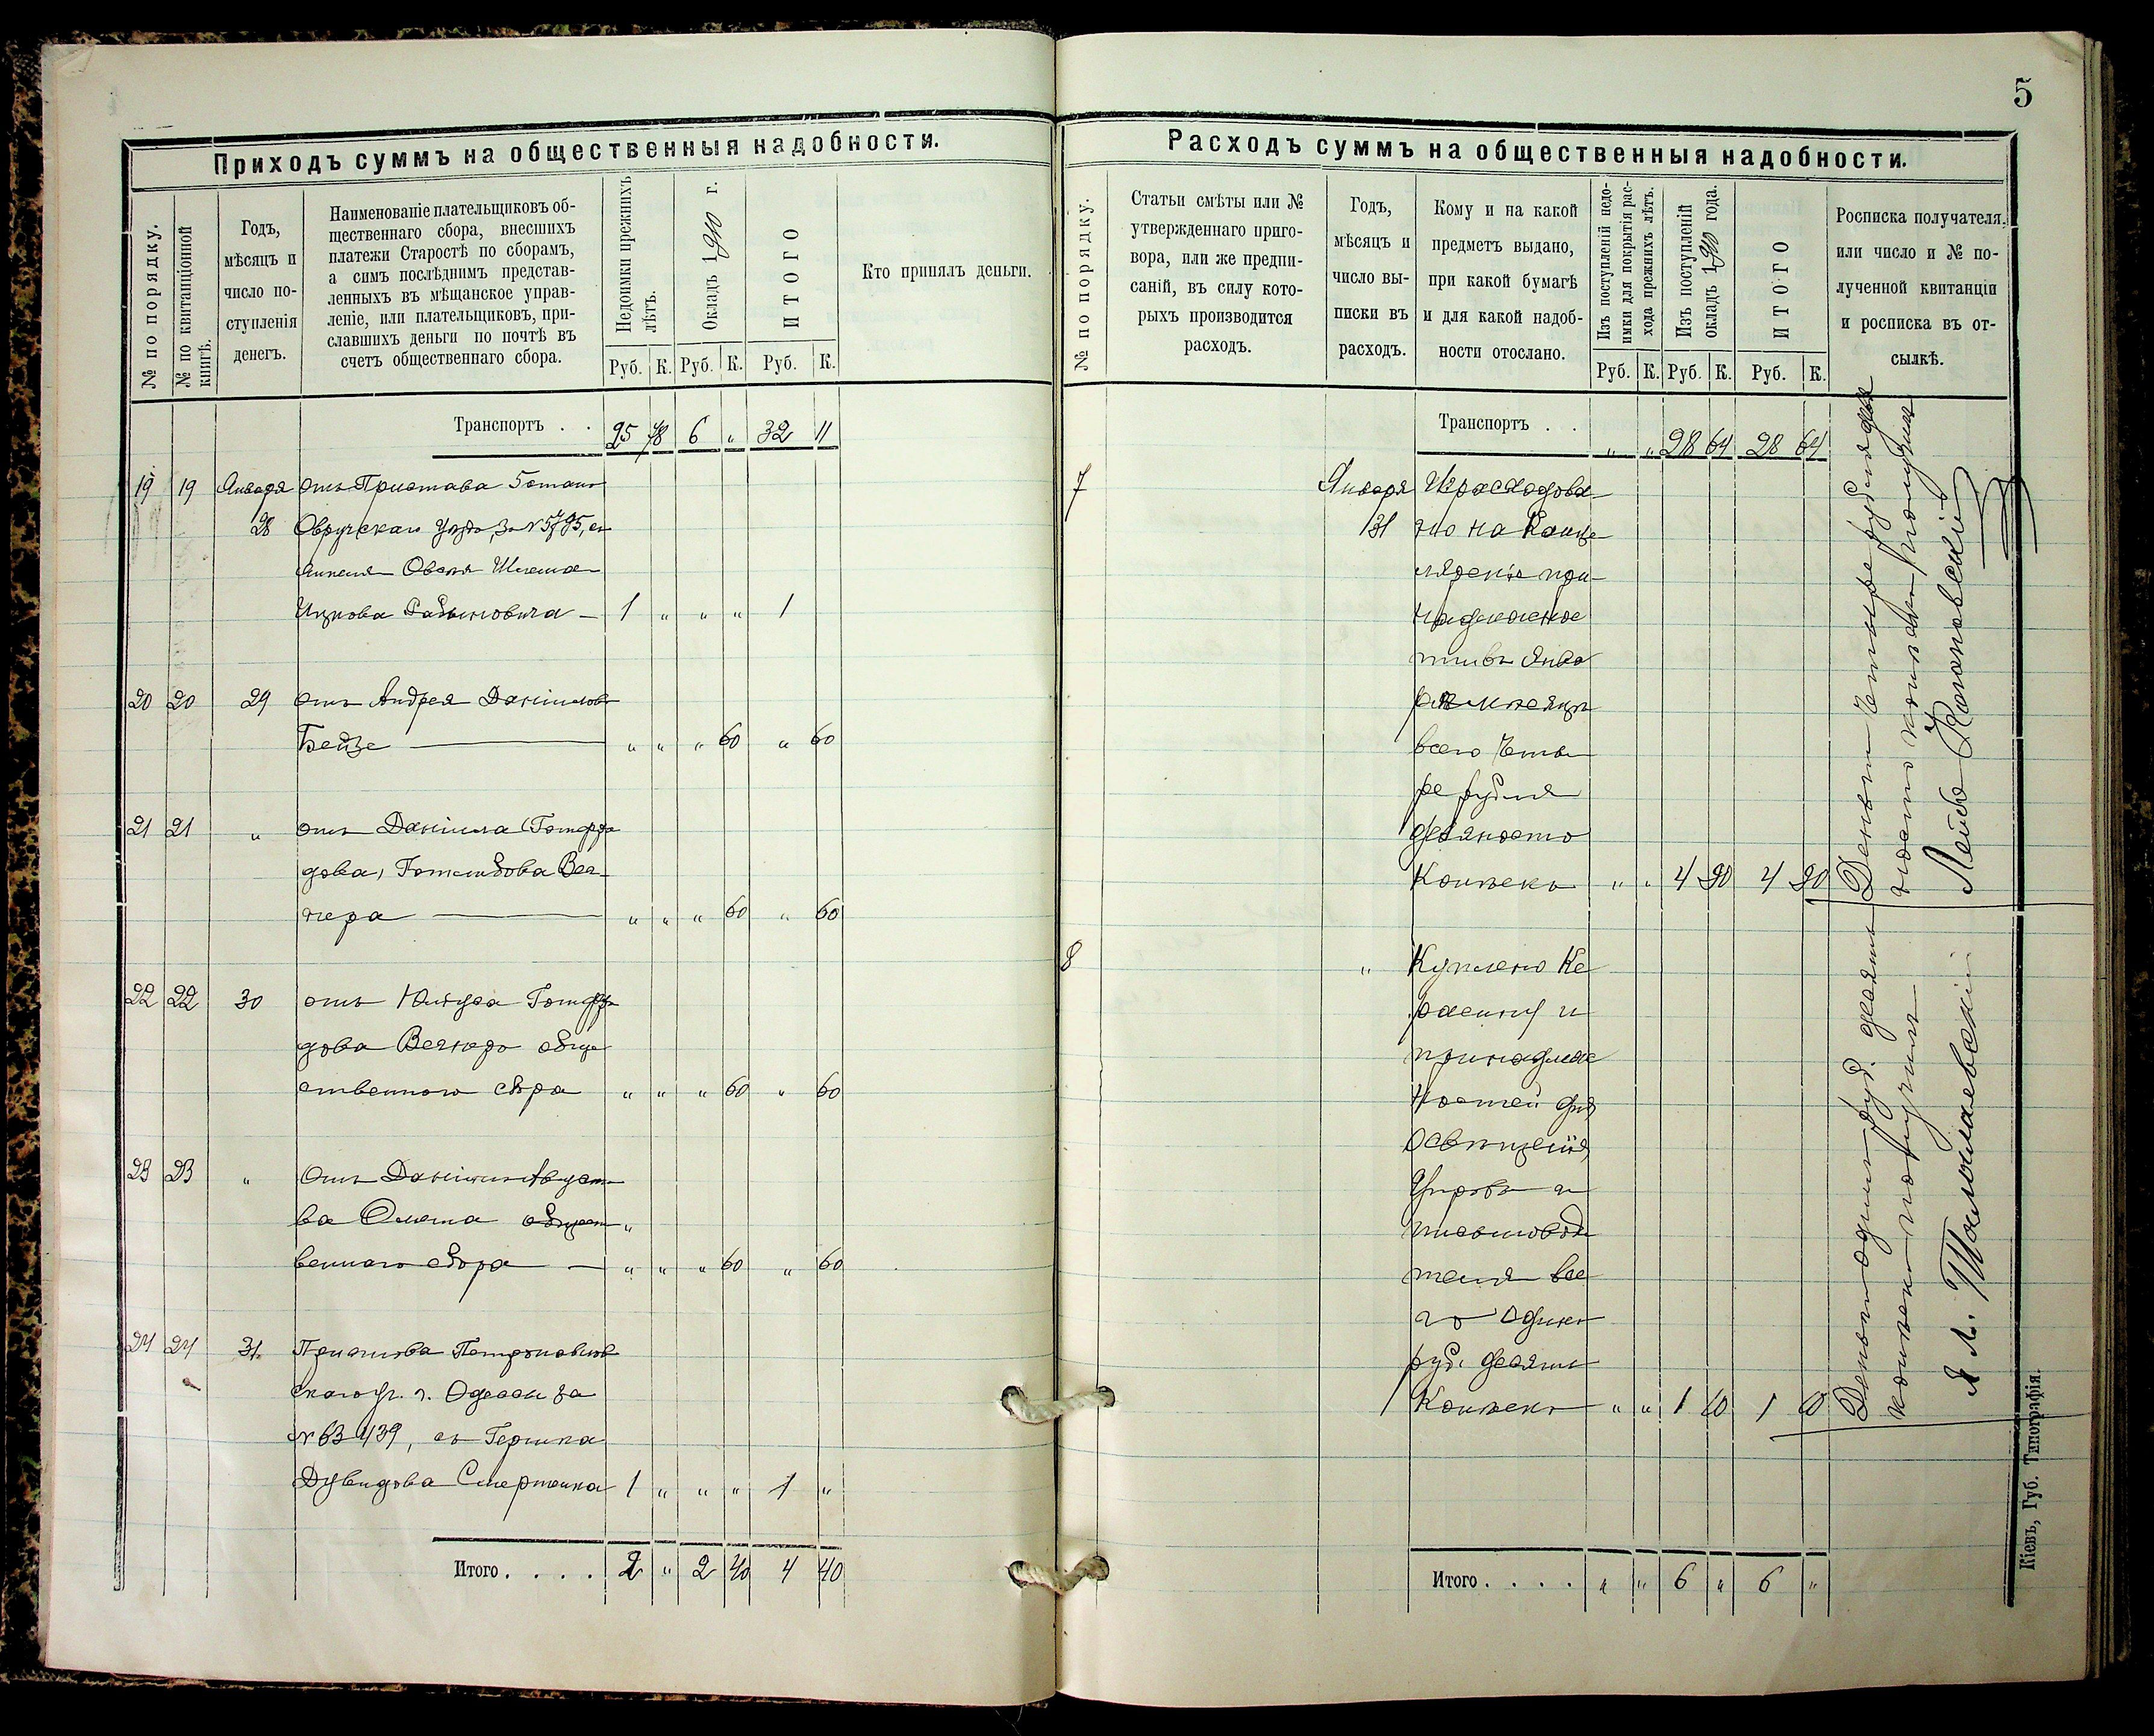 5
Приходъ суммъ на общественныя надобности.
№ по порядку.
№ по квитанціонной книгѣ.
Годъ,
мѣсяцъ и
число по-
ступленія
денегъ.
Наименованіе плательщиковъ об-
щественнаго сбора, внесшихъ
платежи Старостѣ по сборамъ,
а симъ послѣднимъ представ-
ленныхъ въ мѣщанское управ-
леніе, или плательщиковъ, при-
славшихъ деньги по почтѣ въ
счетъ общественнаго сбора.
Недоимки прежнихъ
лѣтъ.
Окладъ 1910 г.
ИТОГО
Кто принялъ деньги.
Руб. К. Руб. К. Руб. К.
Транспортъ . . 25 78 6 „ 32 11
19 19 Января отъ Пристава 5 стана
28 Овручскаго уѣзда, за № 5795, съ
Шлема
Ицкова Рабиновича — 1 „ „ „ 1
20 20 29 отъ Андрея Даніилова
Бейзе — „ „ „ 60 „ 60
21 21 „ отъ Даніила Готфри
дова, Готлибова Ваг-
нера — „ „ „ 60 „ 60
22 22 30 отъ Юлиуса Готфри
дова Вагнера обще
ственнаго сбора „ „ „ 60 „ 60
23 23 „ отъ Августо
ва общест „
веннаго сбора — „ „ „ 60 „ 60
24 24 31. Пристава Петропавлов
скаго уч. г. Одессы за
№ 63439, съ Гершка
Дувидова 1 „ „ „ 1 „
Итого . . . . 2 „ 2 40 4 40
Расходъ суммъ на общественныя надобности.
№ по порядку.
Статьи смѣты или №
утвержденнаго приго-
вора, или же предпи-
саній, въ силу кото-
рыхъ производится
расходъ.
Годъ,
мѣсяцъ и
число вы-
писки въ
расходъ.
Кому и на какой
предметъ выдано,
при какой бумагѣ
и для какой надоб-
ности отослано.
Изъ поступленій недо-
имки для покрытія рас-
хода прежнихъ лѣтъ.
Изъ поступленій
окладъ 1910 года.
ИТОГО
Росписка получателя,
или число и № по-
лученной квитанціи
и росписка въ от-
сылкѣ.
Руб. К. Руб. К. Руб. К.
Транспортъ . . „ „ 28 64 28 64
7 Января Израсходова
31 но на Канце
лярскіе при
надлежно
сти въ Янва
рѣ мѣсяцѣ
всего Четы
ре рубля
девяносто
Копѣекъ „ „ 4 90 4 90
Деньги Четыре рубля девя
носто копѣекъ получилъ
Лейба
8 „ Куплено Ке
расину и
принадлеж
ностей для
освѣщенія
Управы и
письмоводи
теля все
го Одинъ
руб. десять
Копѣекъ „ „ 1 10 1 10
Деньги одинъ руб. десять
копѣекъ получилъ
Итого . . . . „ „ 6 „ 6 „
Кіевъ, Губ. Типографія.